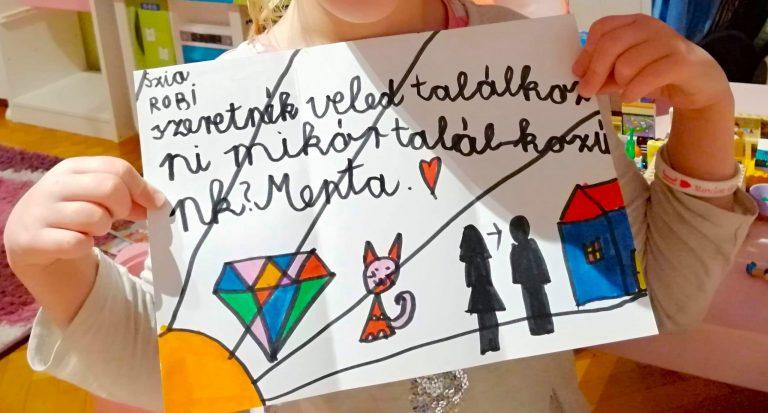 Szia
ROBI
szeretnék veled találkoz
ni mikor talál-kozú
nk? Menta.